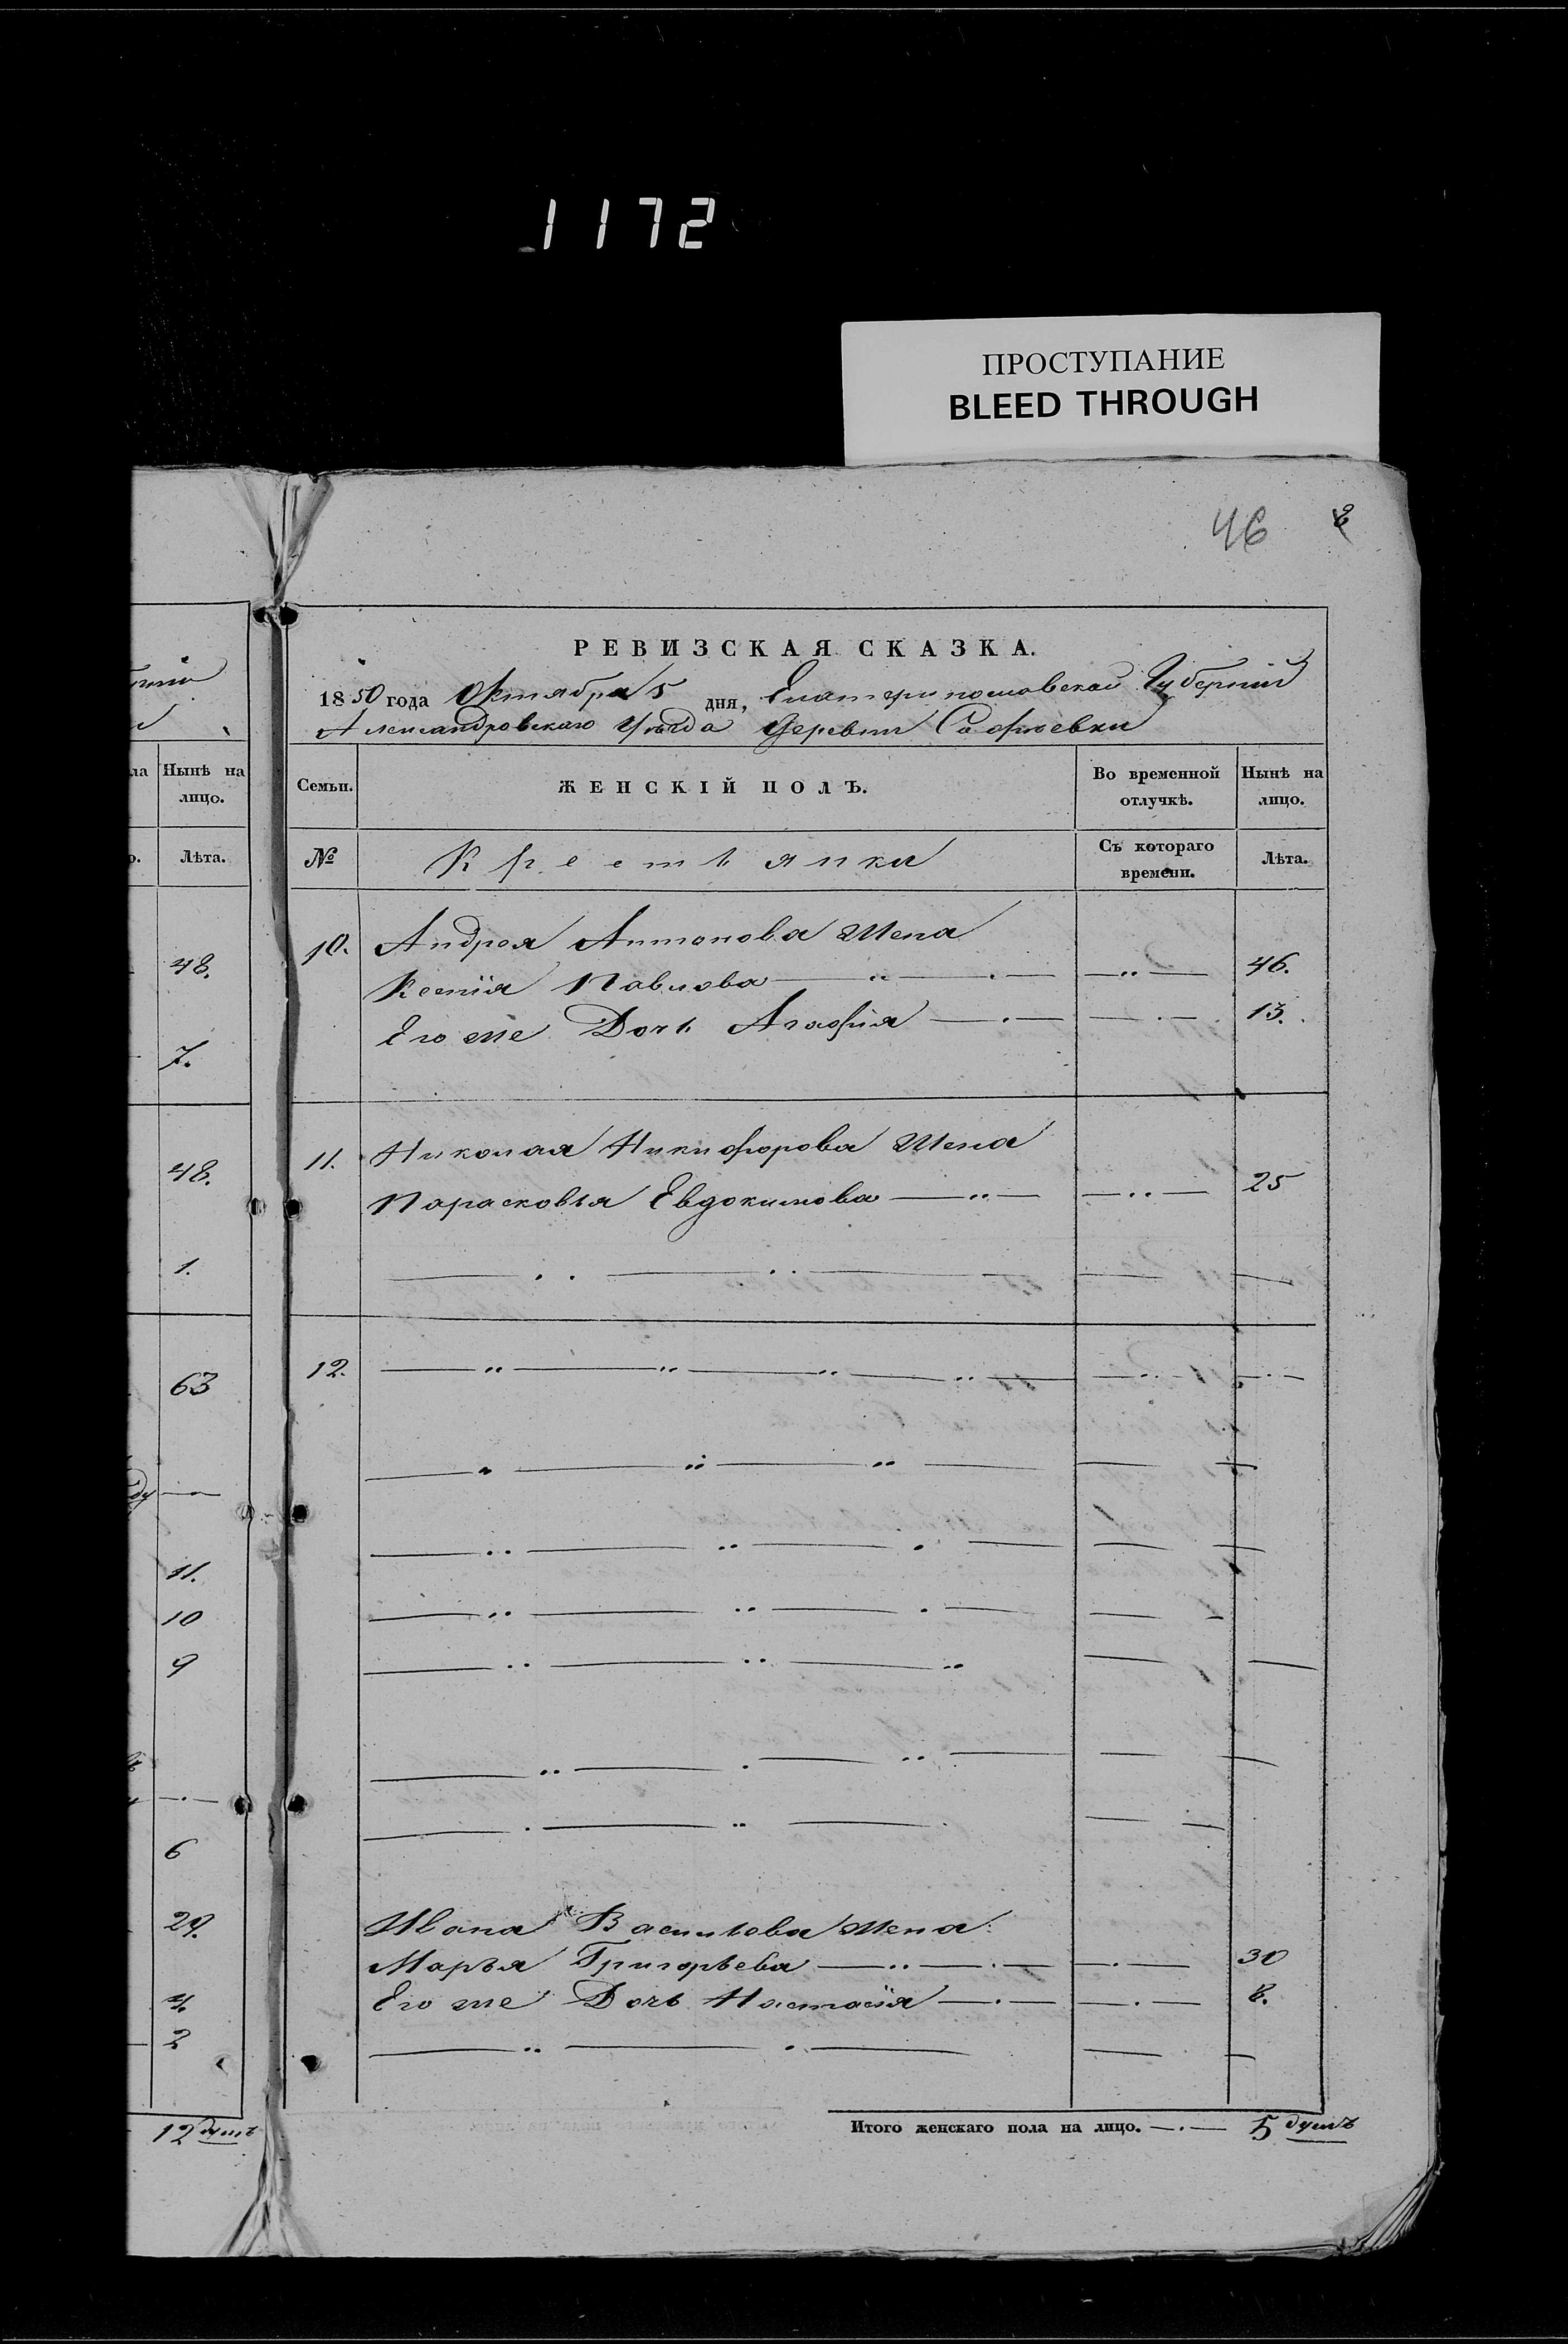 1172
ПРОСТУПАНИЕ
BLEED THROUGH
46 8
РЕВИЗСКАЯ СКАЗКА.
1850 года Октября 5 дня, Екатеринославской Губерніи
Александровскаго Уѣзда Деревни Софіевки
Нынѣ на лицо.
Лѣта.
48.
7.
48.
1.
63
11.
10
9
6
29.
4.
2
12 душъ
Семьи. ЖЕНСКІЙ ПОЛЪ. Во временной отлучкѣ. Нынѣ на лицо.
№ Крестьянки Съ котораго времени. Лѣта.
10. Андрея Антонова Жена
Ксенія Павлова 46.
Его же Дочь Агафія 13.
11. Николая Никифорова Жена
Парасковья Евдокимова 25
12.
Ивана Васильева Жена
Марья Григорьева 30
Его же Дочь Настасія 8.
Итого женскаго пола на лицо. 5 душъ